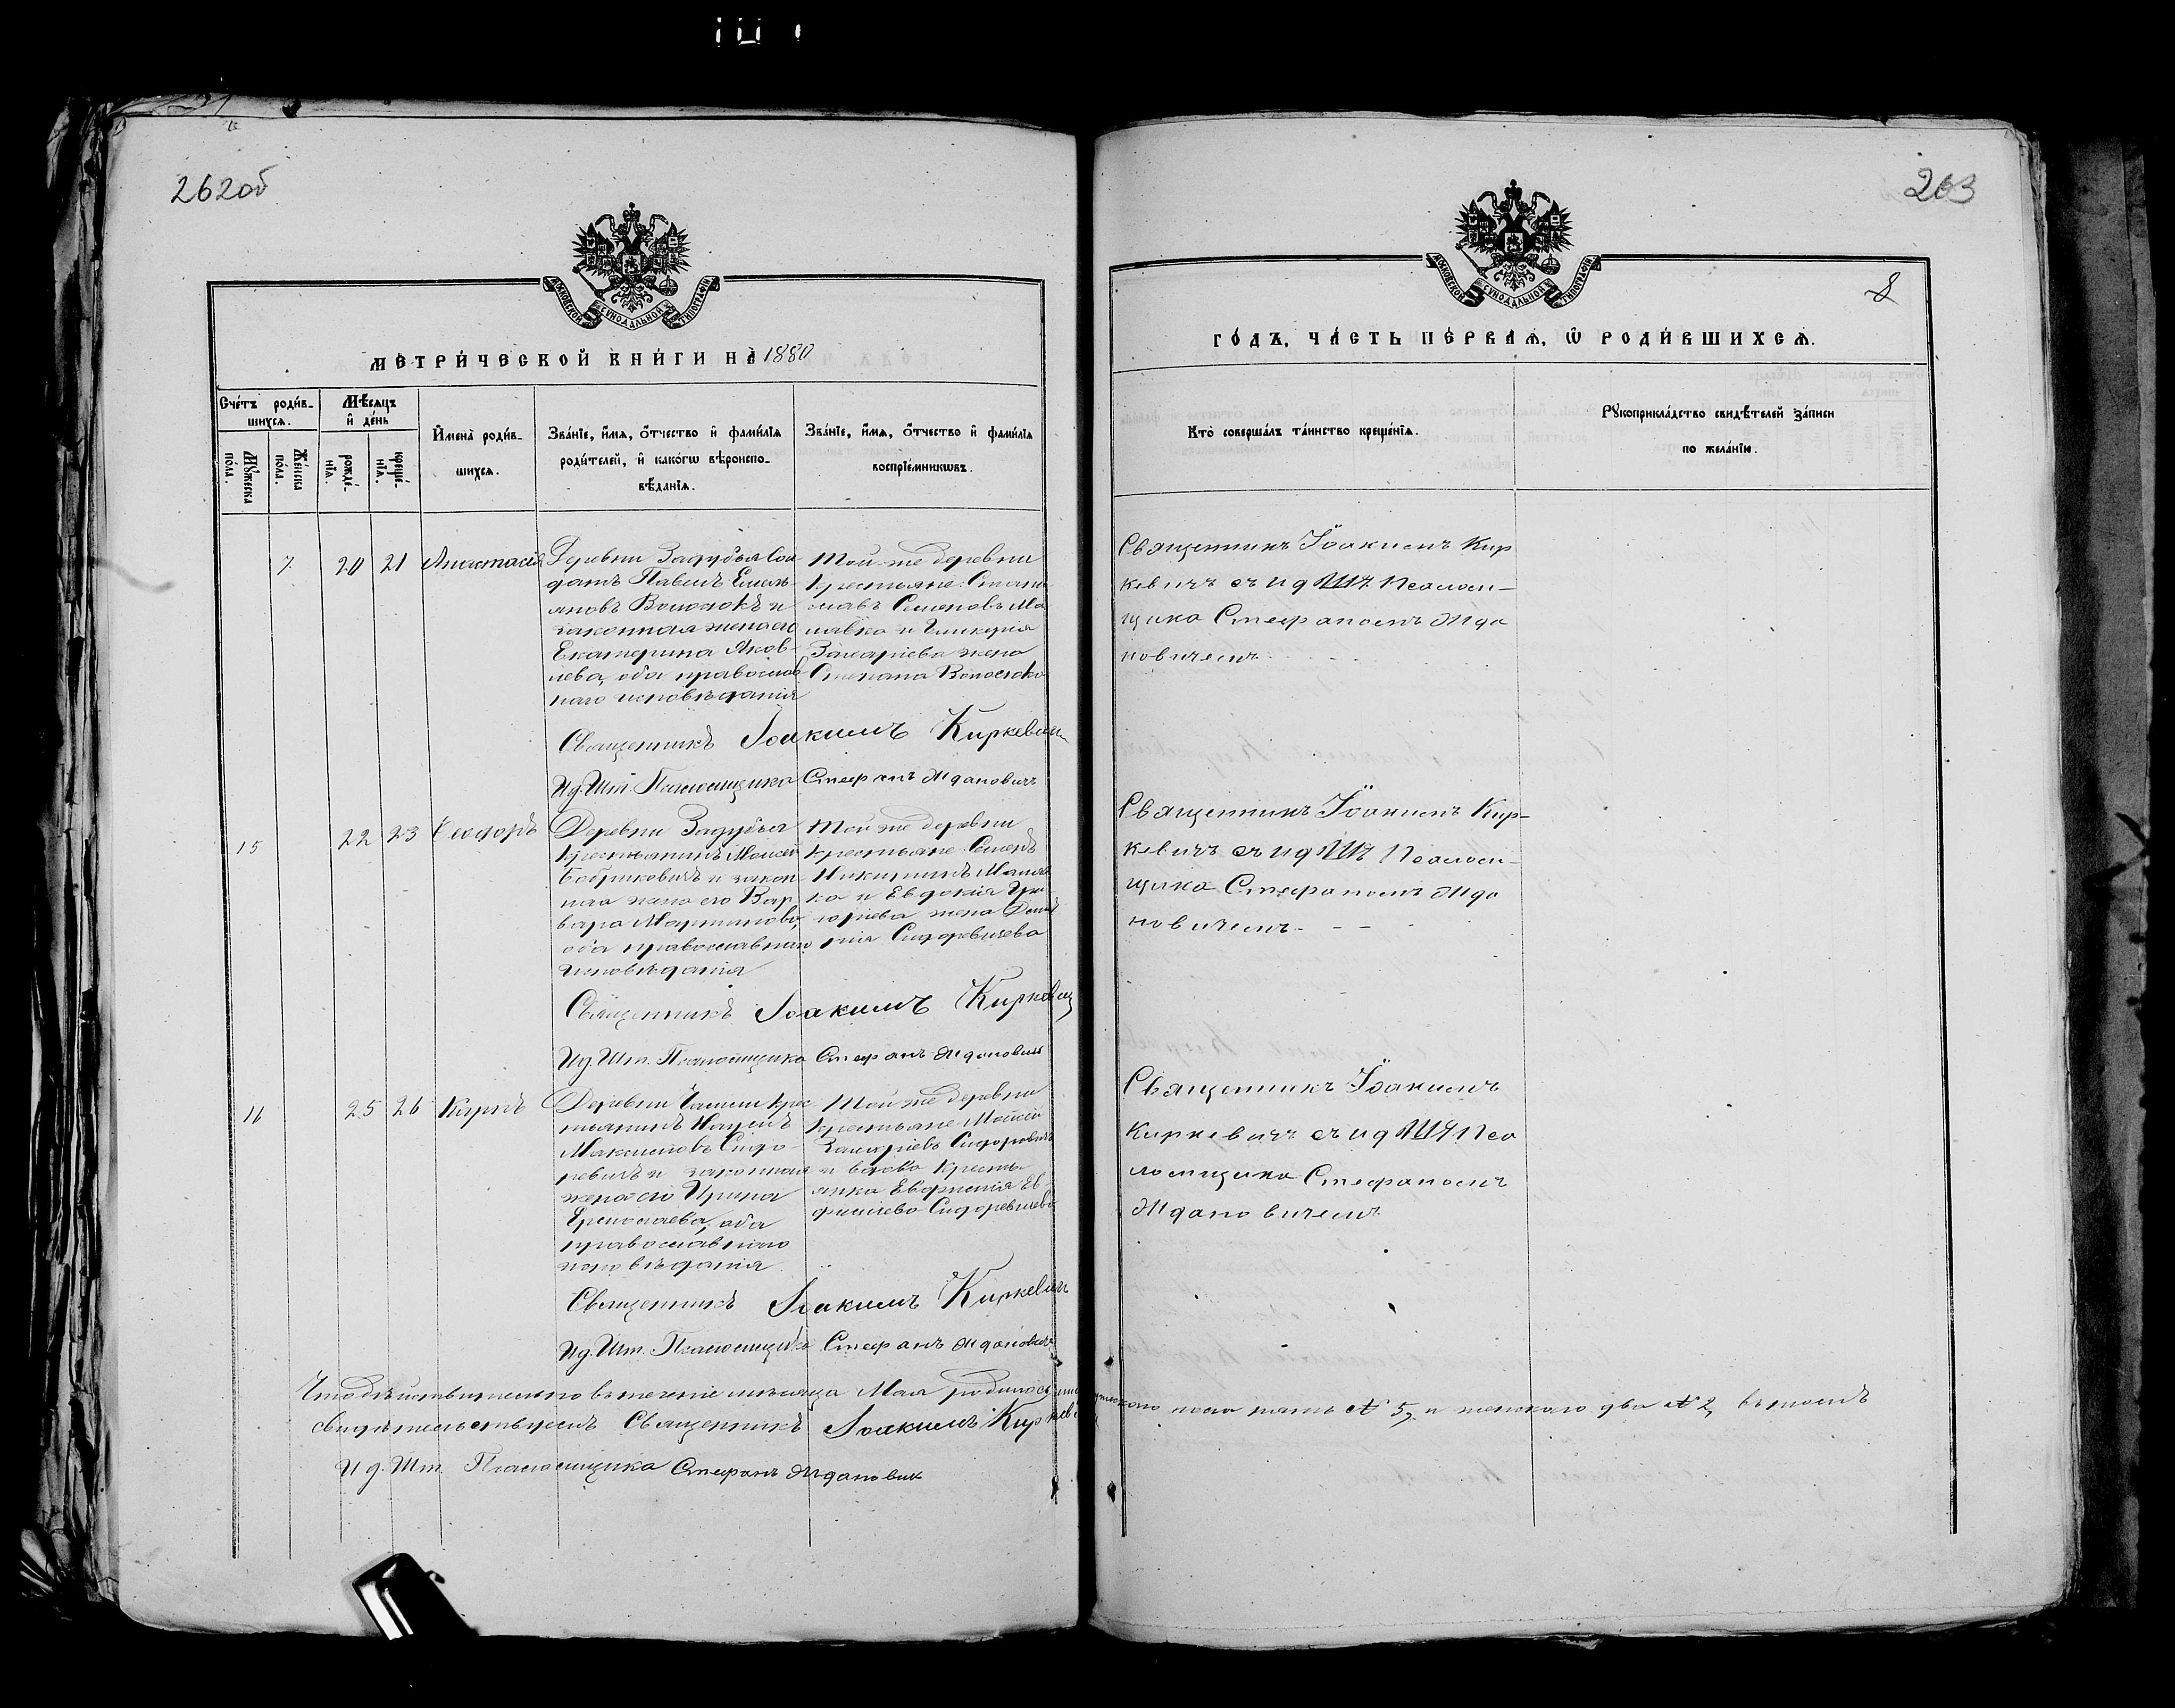 262об
203
8
МОСКОВСКОЙ СѴНОДАЛЬНОЙ ТИПОГРАФІИ
МЕТРИ́ЧЕСКОЙ КНИ́ГИ НА̀ 1880
Сче́тъ роди́в-
шихсѧ.
Мѣ́сѧцъ
и҆ де́нь
Мꙋ́жеска
по́ла.
Же́нска
по́ла.
рожде́-
нїѧ.
креще́-
нїѧ.
И҆мена̀ роди́в-
шихсѧ.
Зва́нїе, и҆́мѧ, ѻ҆́тчество и҆ фами́лїѧ
роди́телей, и҆ како́гѡ вѣроиспо-
вѣ́данїѧ.
Зва́нїе, и҆́мѧ, ѻ҆́тчество и҆ фами́лїѧ
воспрїе́мникѡвъ.
7 20 21 Анастасія
Деревни Задубья Сол
датъ Павелъ Емель
яновъ Волосюкъ и
законная жена его
Екатерина Яков-
лева, оба православ
наго исповѣданія
Той-же деревни
Крестьяне: Стани
славъ Семеновъ Ма
лявка и Гликерія
Захаріева жена
Степана Волосюка
Священникъ Іоакимъ Киркевичъ
Ид. Шт. Псаломщика Стефанъ Ждановичъ
15 22 23 Ѳеодоръ
Деревни Задубья
Крестьянинъ Моисей
Бобриковичъ и закон
ная жена его Вар
вара Мартинова,
оба православнаго
исповѣданія
Той же деревни
Крестьяне: Семенъ
Никитинъ Маляв
ка и Евдокія Гри-
горіева жена
Сидоревичева
Священникъ Іоакимъ Киркевич
Ид. Шт. Псаломщика Стефанъ Ждановичъ
16 25 26 Карпъ
Деревни Крес
тьянинъ Наумъ
Максимовъ Сидо-
ревичъ и законная
жена его Ирина
Ермолаева, оба
православнаго
исповѣданія
Той же деревни
Крестьяне Моисей
Захаріевъ Сидоревичъ
и вдова Кресть
янка Евфимія Ев
фиміева Сидоревичева
Священникъ Іоакимъ Киркевичъ
Ид. Шт. Псаломщика Стефанъ Ждановичъ
Что дѣйствительно въ теченіе мѣсяца Мая родилось мужескаго пола пять № 5, и женскаго два № 2, въ томъ
свидѣтельствуемъ Священникъ Іоакимъ Киркевич
Ид. Шт. Псаломщика Стефанъ Ждановичъ
МОСКОВСКОЙ СѴНОДАЛЬНОЙ ТИПОГРАФІИ
ГО́ДЪ, ЧА́СТЬ ПЕ́РВАѦ, Ѡ҆ РОДИ́ВШИХСѦ.
Кто̀ соверша́лъ та́инство креще́нїѧ.
Рꙋкоприкла́дство свидѣ́телей за́писи
по жела́нїю.
Священникъ Іоакимъ Кир
кевичъ съ и д Шт Псалом-
щика Стефаномъ Жда
новичемъ
Священникъ Іоакимъ Кир-
кевичъ съ и д Шт Псалом-
щика Стефаномъ Жда
новичемъ
Священникъ Іоакимъ
Киркевичъ съ и д Шт Пса
ломщика Стефаномъ
Ждановичемъ